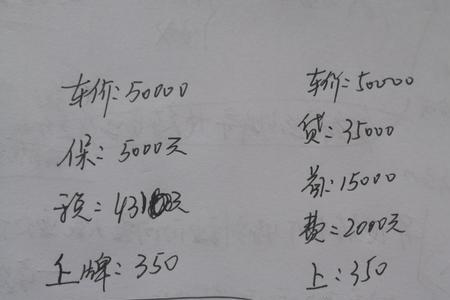 车价:50000
保:5000元
税=4310元
上牌:350
车价:50000
贷:35000
首:15000
费:2000元
上:350